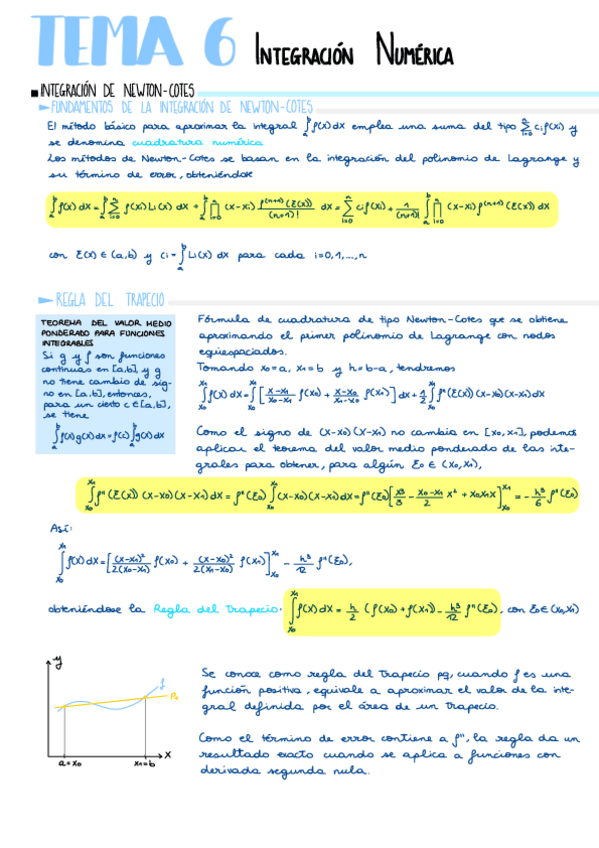 TEMA 6 INTEGRACIÓN NUMÉRICA
INTEGRACIÓN DE NEWTON-COTES
FUNDAMENTOS DE LA INTEGRACIÓN DE NEWTON-COTES
El método básico para aproximar la integral ∫ₐᵇ f(x)dx emplea una suma del tipo Σᵢ₌₀ⁿ cᵢf(xᵢ) y
se denomina cuadratura numérica
Los métodos de Newton-Cotes se basan en la integración del polinomio de Lagrange y
su término de error, obteniéndose
∫ₐᵇ f(x)dx = ∫ₐᵇ Σᵢ₌₀ⁿ f(xᵢ)Lᵢ(x) dx + ∫ₐᵇ ∏ᵢ₌₀ⁿ (x-xᵢ) f⁽ⁿ⁺¹⁾(ξ(x))/(n+1)! dx = Σᵢ₌₀ⁿ cᵢf(xᵢ) + 1/(n+1)! ∫ₐᵇ ∏ᵢ₌₀ⁿ (x-xᵢ) f⁽ⁿ⁺¹⁾(ξ(x)) dx
con ξ(x) ∈ (a,b) y cᵢ = ∫ₐᵇ Lᵢ(x) dx para cada i=0,1,...,n
REGLA DEL TRAPECIO
TEOREMA DEL VALOR MEDIO
PONDERADO PARA FUNCIONES
INTEGRABLES
Si g y f son funciones
continuas en [a,b], y g
no tiene cambio de sig-
no en [a,b], entonces,
para un cierto c ∈ [a,b],
se tiene
∫ₐᵇ f(x)g(x)dx = f(c) ∫ₐᵇ g(x)dx
Fórmula de cuadratura de tipo Newton-Cotes que se obtiene
aproximando el primer polinomio de Lagrange con nodos
equiespaciados.
Tomando x₀=a, x₁=b y h=b-a, tendremos
∫ₓ₀ˣ¹ f(x)dx = ∫ₓ₀ˣ¹ [ (x-x₁)/(x₀-x₁) f(x₀) + (x-x₀)/(x₁-x₀) f(x₁) ] dx + 1/2 ∫ₓ₀ˣ¹ f''(ξ(x))(x-x₀)(x-x₁)dx
Como el signo de (x-x₀)(x-x₁) no cambia en [x₀,x₁], podemos
aplicar el teorema del valor medio ponderado de las inte-
grales para obtener, para algún ξ₀ ∈ (x₀,x₁),
∫ₓ₀ˣ¹ f''(ξ(x))(x-x₀)(x-x₁)dx = f''(ξ₀) ∫ₓ₀ˣ¹ (x-x₀)(x-x₁)dx = f''(ξ₀) [ x³/3 - (x₀-x₁)/2 x² + x₀x₁x ]ₓ₀ˣ¹ = - h³/6 f''(ξ₀)
Así:
∫ₓ₀ˣ¹ f(x)dx = [ (x-x₁)²/2(x₀-x₁) f(x₀) + (x-x₀)²/2(x₁-x₀) f(x₁) ]ₓ₀ˣ¹ - h³/12 f''(ξ₀),
obteniéndose la Regla del Trapecio: ∫ₓ₀ˣ¹ f(x)dx = h/2 (f(x₀)+f(x₁)) - h³/12 f''(ξ₀), con ξ₀∈(x₀,x₁)
y
f
P₁
x
a=x₀
x₁=b
Se conoce como regla del Trapecio pq, cuando f es una
función positiva, equivale a aproximar el valor de la inte-
gral definida por el área de un trapecio.
Como el término de error contiene a f'', la regla da un
resultado exacto cuando se aplica a funciones con
derivada segunda nula.